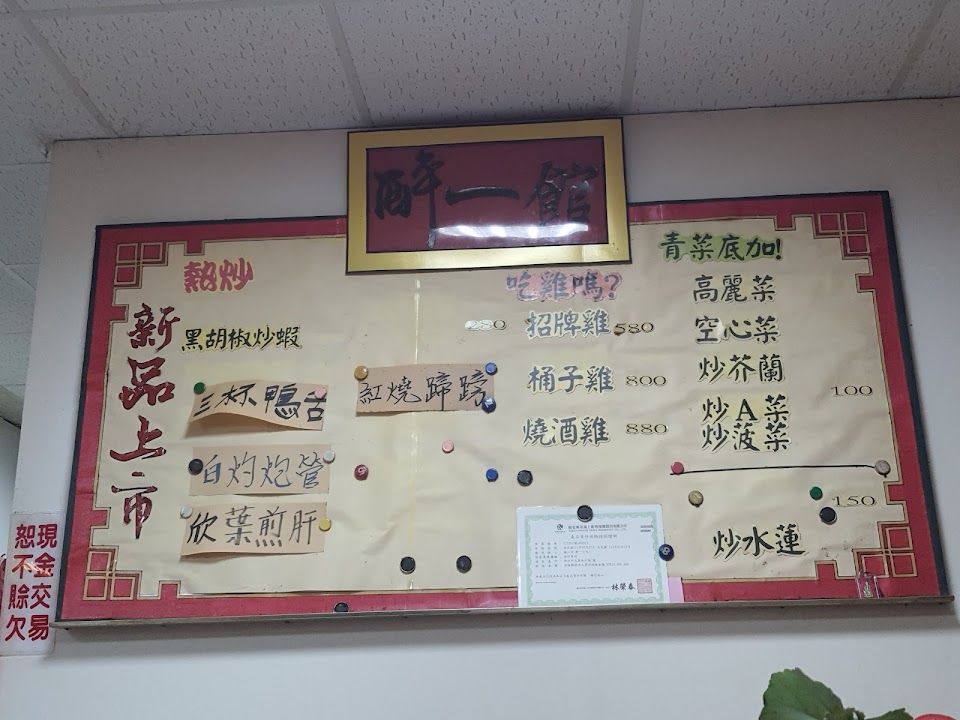 醉一館
熱炒
新品上市
黑胡椒炒蝦 280
三杯鴨舌
白灼炮管
欣葉煎肝
紅燒蹄膀
吃雞嗎?
招牌雞 580
桶子雞 800
燒酒雞 880
青菜底加!
高麗菜
空心菜
炒芥蘭
炒A菜
炒菠菜
100
150
炒水蓮
林榮春
現金交易
恕不賒欠